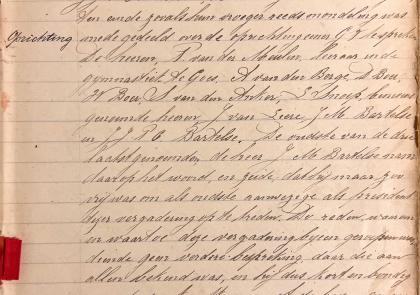 Ten einde zooals hun vroeger reeds mondeling was
Oprichting
mede gedeeld over de oprichting eener G. V. te spreken
de heeren, F. van der Meulen, leeraar in de
gymnastiek te Goes, A van den Berge, S. Boer,
W Boer, S. van den Anker, L Snoep, benevens
genoemde heeren J van Leere, J M Bartelse
en J J P C Bartelse. De oudste van de drie
laatstgenoemden de heer J M Bartelse nam
daarop het woord, en zeide, dat hij maar zoo
vrij was om als oudste aanwezige als president
dezer vergadering op te treden. De reden, waarom
en waartoe deze vergadering bijeen geroepen was
diende geen verdere bespreking, daar die aan
allen bekend was, en hij dus kort en bondig